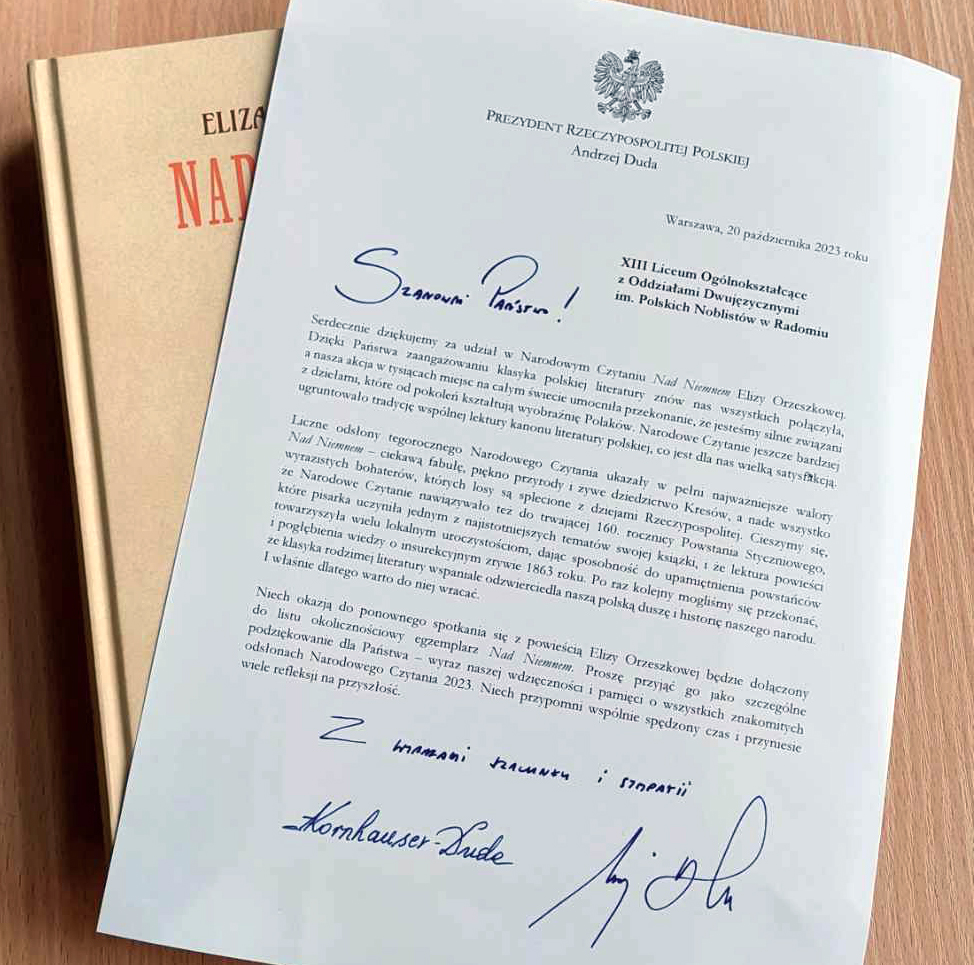 ELIZA
NAD
PREZYDENT RZECZYPOSPOLITEJ POLSKIEJ
Andrzej Duda
Warszawa, 20 października 2023 roku
Szanowni Państwo!
XIII Liceum Ogólnokształcące
z Oddziałami Dwujęzycznymi
im. Polskich Noblistów w Radomiu
Serdecznie dziękujemy za udział w Narodowym Czytaniu Nad Niemnem Elizy Orzeszkowej.
Dzięki Państwa zaangażowaniu klasyka polskiej literatury znów nas wszystkich połączyła,
a nasza akcja w tysiącach miejsc na całym świecie umocniła przekonanie, że jesteśmy silnie związani
z dziełami, które od pokoleń kształtują wyobraźnię Polaków. Narodowe Czytanie jeszcze bardziej
ugruntowało tradycję wspólnej lektury kanonu literatury polskiej, co jest dla nas wielką satysfakcją.
Liczne odsłony tegorocznego Narodowego Czytania ukazały w pełni najważniejsze walory
Nad Niemnem – ciekawą fabułę, piękno przyrody i żywe dziedzictwo Kresów, a nade wszystko
wyrazistych bohaterów, których losy są splecione z dziejami Rzeczypospolitej. Cieszymy się,
że Narodowe Czytanie nawiązywało też do trwającej 160. rocznicy Powstania Styczniowego,
które pisarka uczyniła jednym z najistotniejszych tematów swojej książki, i że lektura powieści
towarzyszyła wielu lokalnym uroczystościom, dając sposobność do upamiętnienia powstańców
i pogłębienia wiedzy o insurekcyjnym zrywie 1863 roku. Po raz kolejny mogliśmy się przekonać,
że klasyka rodzimej literatury wspaniale odzwierciedla naszą polską duszę i historię naszego narodu.
I właśnie dlatego warto do niej wracać.
Niech okazją do ponownego spotkania się z powieścią Elizy Orzeszkowej będzie dołączony
do listu okolicznościowy egzemplarz Nad Niemnem. Proszę przyjąć go jako szczególne
podziękowanie dla Państwa – wyraz naszej wdzięczności i pamięci o wszystkich znakomitych
odsłonach Narodowego Czytania 2023. Niech przypomni wspólnie spędzony czas i przyniesie
wiele refleksji na przyszłość.
Z wyrazami szacunku i sympatii
Kornhauser-Duda